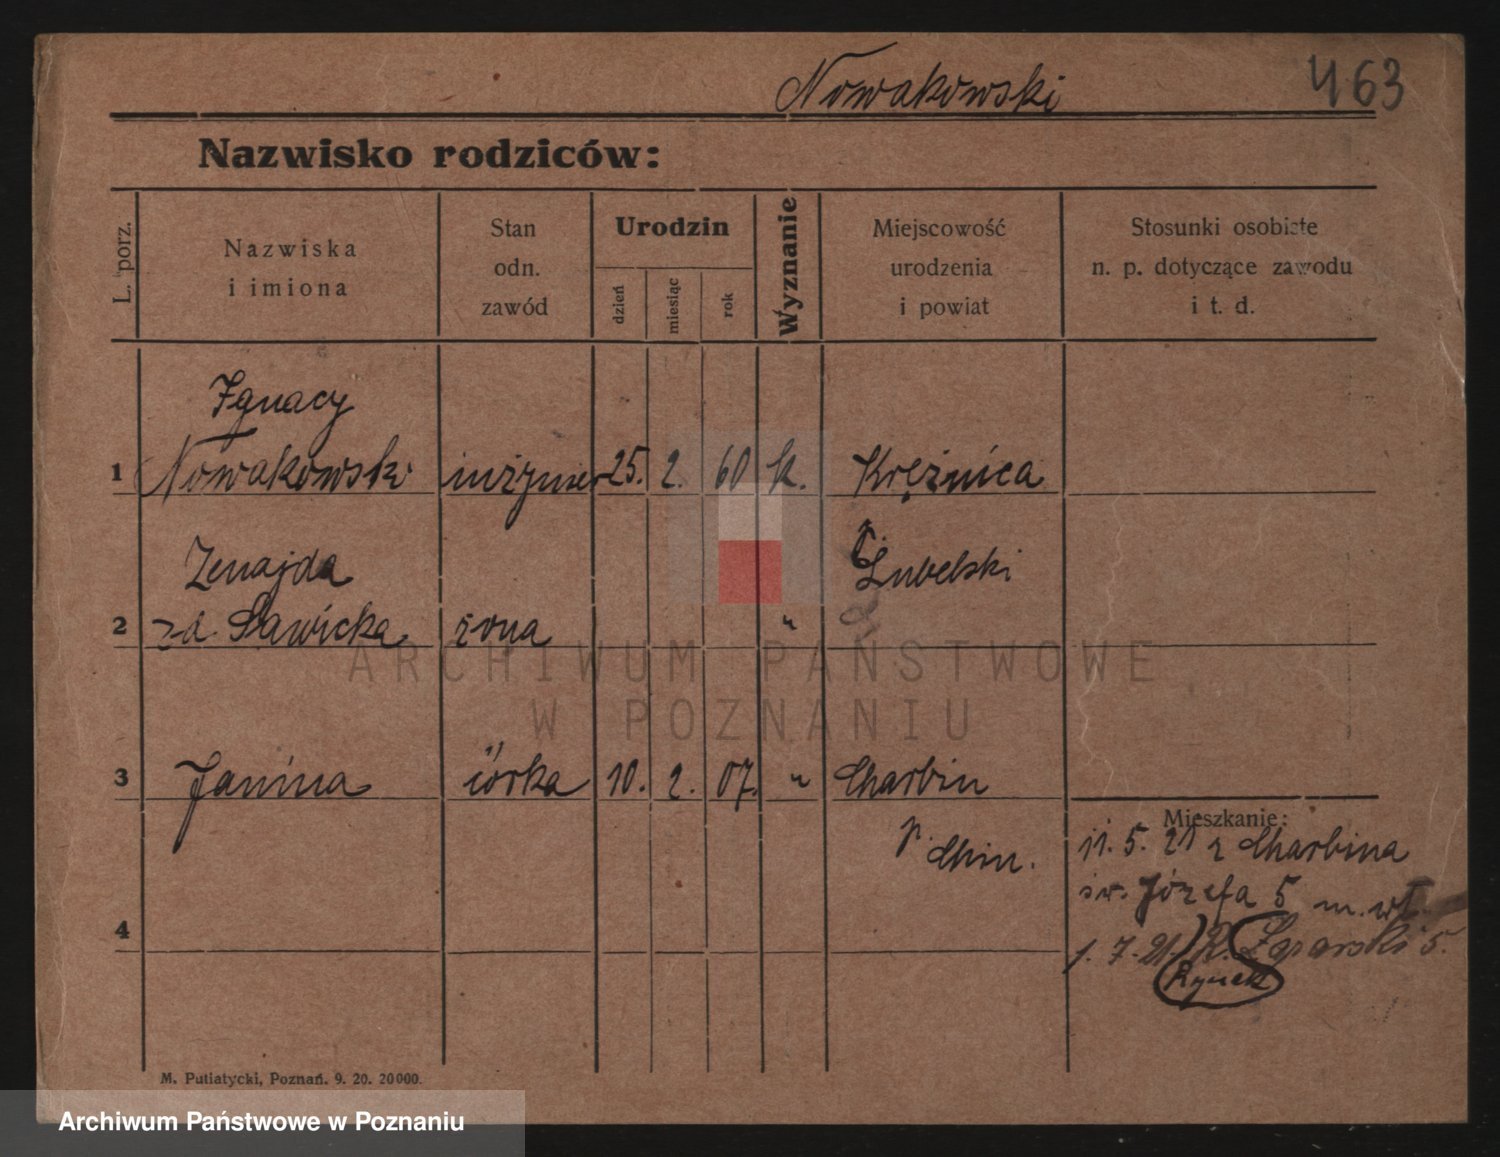 Nowakowski 463
Nazwisko rodziców:
L. porz.
Nazwiska
i imiona
Stan
odn.
zawód
Urodzin
dzień
miesiąc
rok
Wyznanie
Miejscowość
urodzenia
i powiat
Stosunki osobiste
n. p. dotyczące zawodu
i t. d.
Ignacy
1 Nowakowski inżynier 25. 2. 60 k. Krężnica
Zenajda
p. Lubelski
2 zd. Sawicka żona "
3 Janina córka 10. 2. 07. " Charbin
p. Chin.
Mieszkanie:
11. 5. 21 z Charbina
św. Józefa 5 m. wł.
4
1. 7. 21. R.
Rynek
M. Putiatycki, Poznań. 9. 20. 20000.
ARCHIWUM PAŃSTWOWE
W POZNANIU
Archiwum Państwowe w Poznaniu